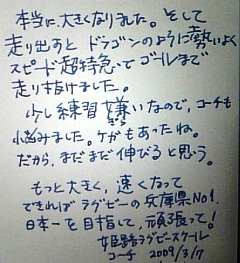 本当に大きくなりました。そして
走り出すと ドラゴンのように勢いよく
スピード超特急でゴールまで
走り抜けました。
少し練習嫌いなので、コーチも
悩みました。ケガもあったね。
だから、まだまだ伸びると思う。
もっと大きく、速くなって
できればラグビーの兵庫県No1.
日本一を目指して、頑張って!
姫路ラグビースクール
コーチ 2009/3/7